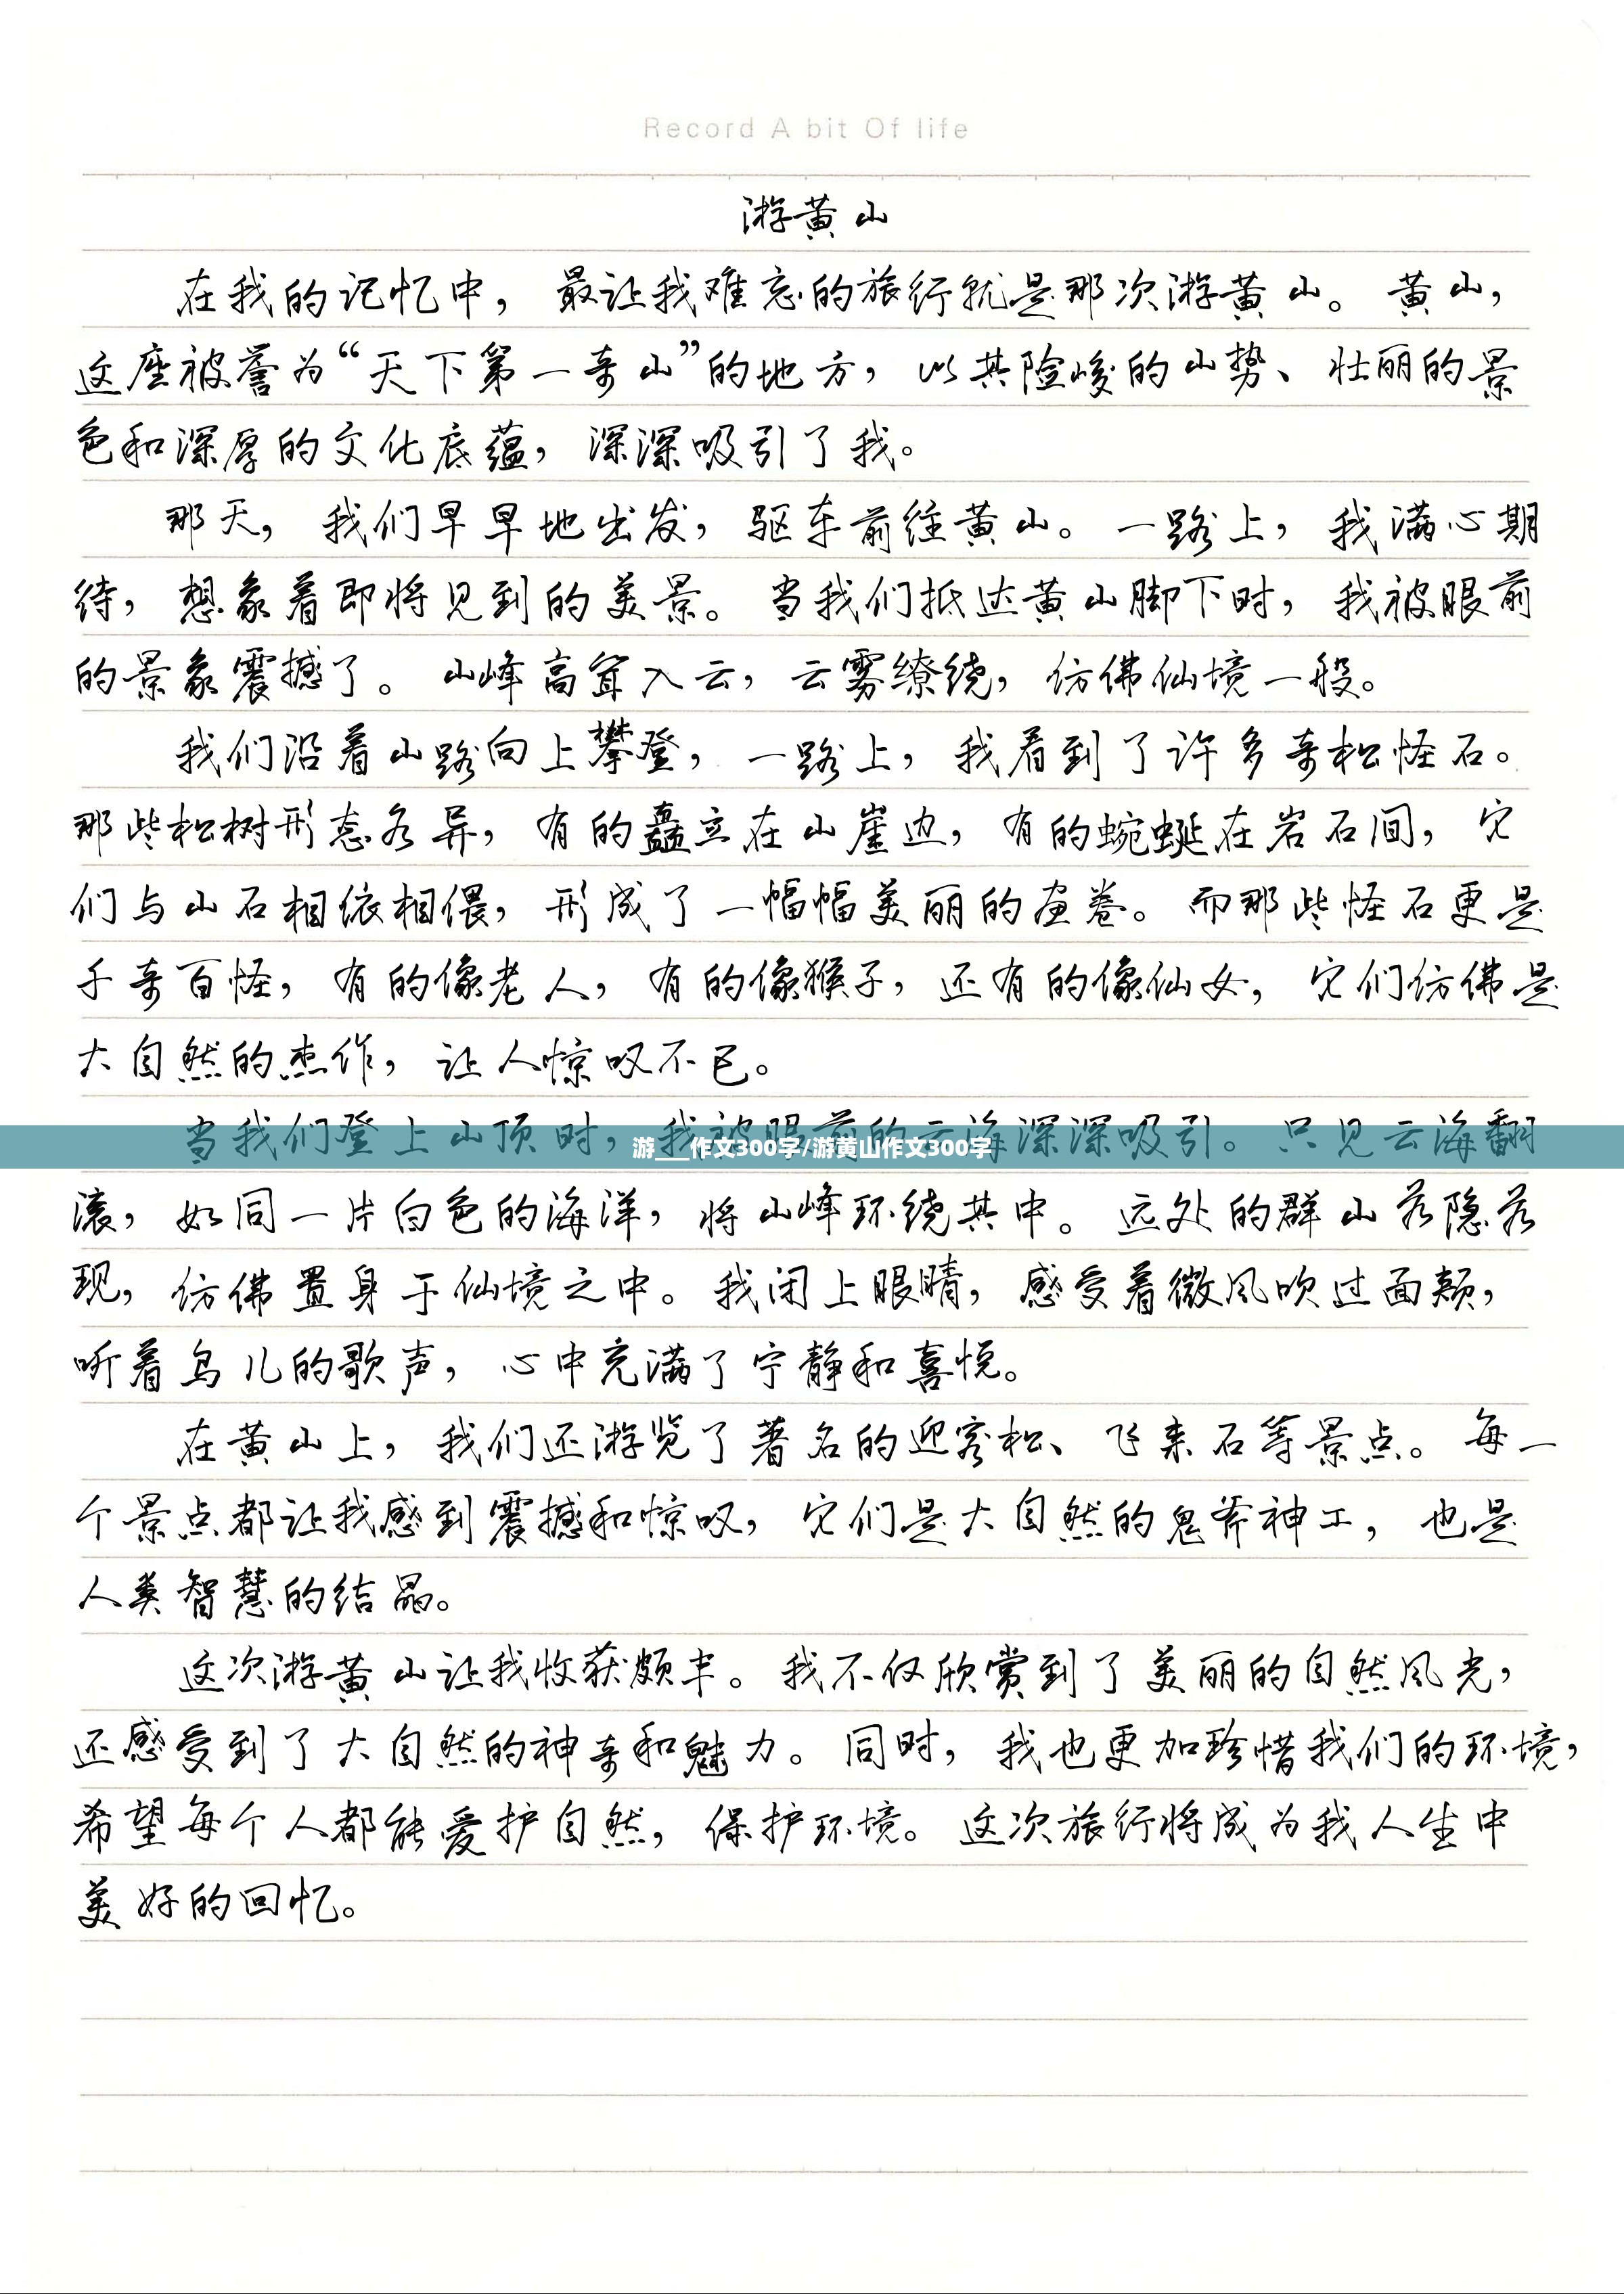 Record A bit Of life
游黄山
在我的记忆中，最让我难忘的旅行就是那次游黄山。黄山，
这座被誉为“天下第一奇山”的地方，以其险峻的山势、壮丽的景
色和深厚的文化底蕴，深深吸引了我。
那天，我们早早地出发，驱车前往黄山。一路上，我满心期
待，想象着即将见到的美景。当我们抵达黄山脚下时，我被眼前
的景象震撼了。山峰高耸入云，云雾缭绕，仿佛仙境一般。
我们沿着山路向上攀登，一路上，我看到了许多奇松怪石。
那些松树形态各异，有的矗立在山崖边，有的蜿蜒在岩石间，它
们与山石相依相偎，形成了一幅幅美丽的画卷。而那些怪石更是
千奇百怪，有的像老人，有的像猴子，还有的像仙女，它们仿佛是
大自然的杰作，让人惊叹不已。
当我们登上山顶时，我被眼前的云海深深吸引。只见云海翻
游___作文300字/游黄山作文300字
滚，如同一片白色的海洋，将山峰环绕其中。远处的群山若隐若
现，仿佛置身于仙境之中。我闭上眼睛，感受着微风吹过面颊，
听着鸟儿的歌声，心中充满了宁静和喜悦。
在黄山上，我们还游览了著名的迎客松、飞来石等景点。每一
个景点都让我感到震撼和惊叹，它们是大自然的鬼斧神工，也是
人类智慧的结晶。
这次游黄山让我收获颇丰。我不仅欣赏到了美丽的自然风光，
还感受到了大自然的神奇和魅力。同时，我也更加珍惜我们的环境，
希望每个人都能爱护自然，保护环境。这次旅行将成为我人生中
美好的回忆。